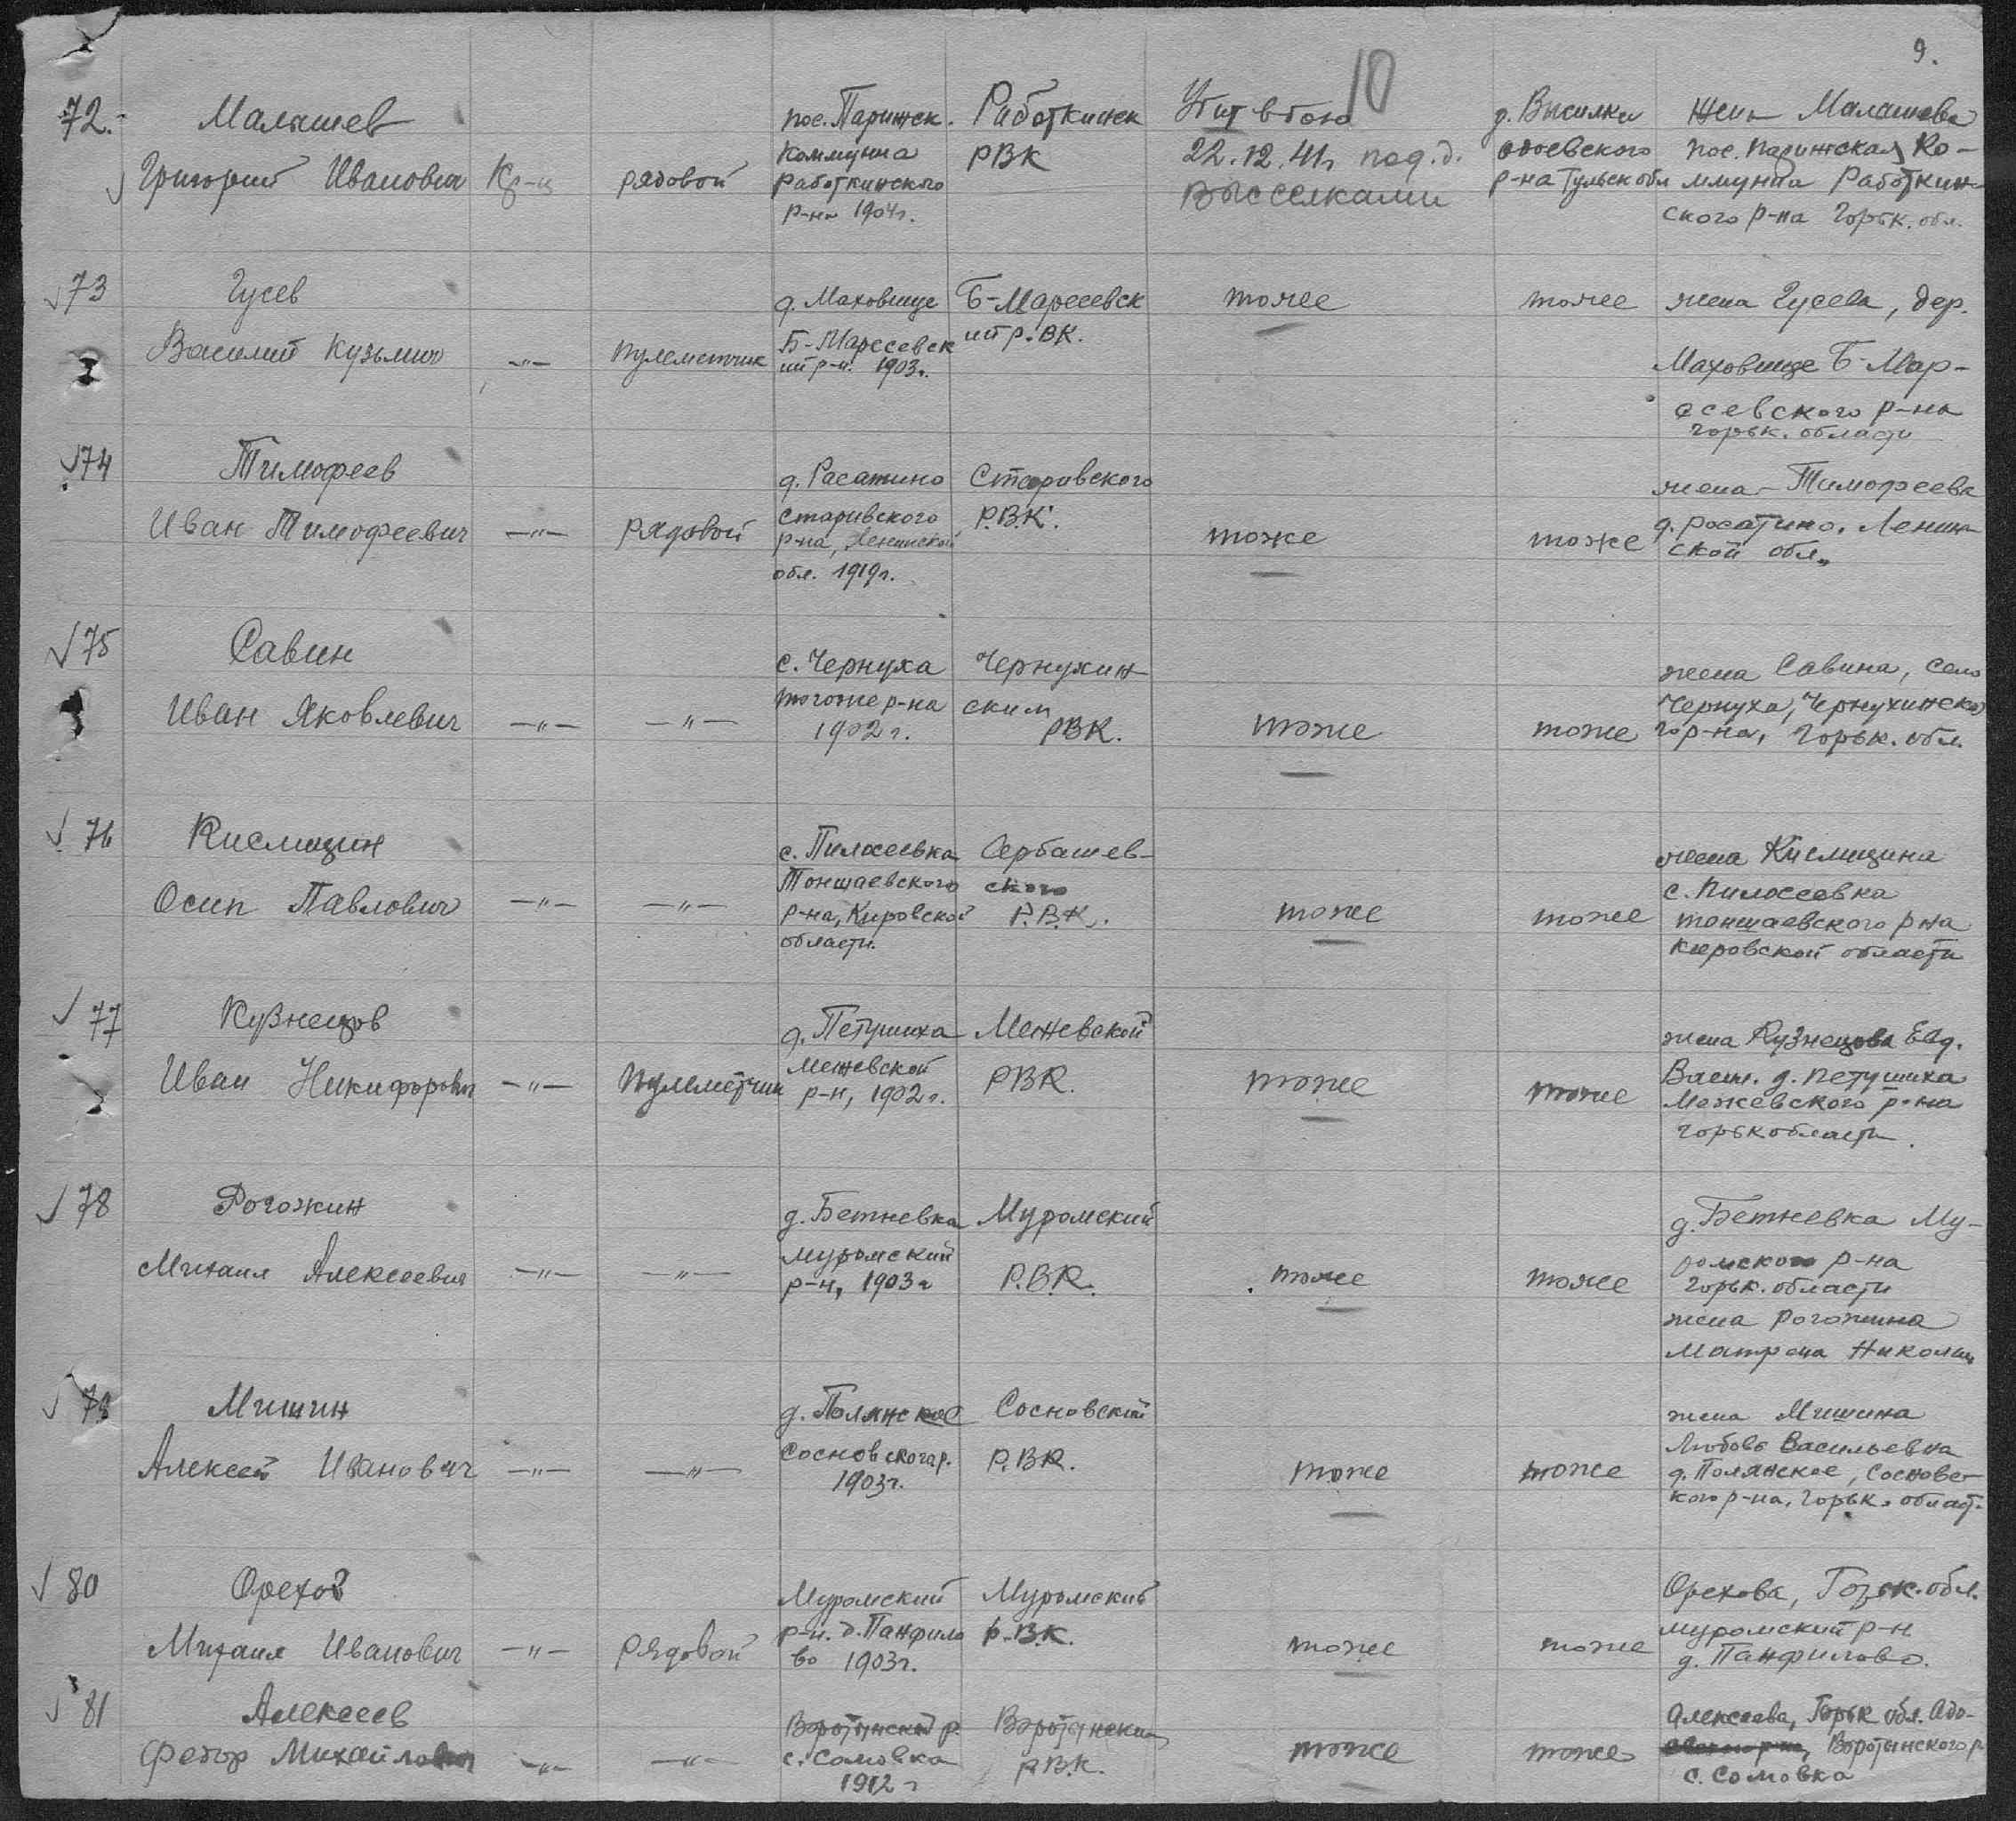 9.
10
72. Малышев
Григорий Иванович Кр-ц рядовой
пос. Парижск.
Коммуна
Работкинского
р-на 1904г.
Работкинск
РВК
Убит в бою
22.12.41г под.д.
Высселками
д. Выселки
одоевского
р-на Тульск обл
жена Малашева
пос. Парижская Ко-
ммунна Работкин-
ского р-на Горьк. обл.
73 Гусев
Василий Кузьмич -"- пулеметчик
д. Маховище
Б-Маресевск
ий р-н. 1903г.
Б-Маресевск
ий р.ВК.
тоже
тоже
жена Гусева, дер.
Маховище Б-Мар-
есевского р-на
горьк. области
74 Тимофеев
Иван Тимофеевич -"- рядовой
д. Расатино
Старивского
р-на, Ленинской
обл. 1919г.
Старивского
Р.В.К.
тоже
тоже
жена - Тимофеева
д. росатино. Ленин-
ской обл.
75 Савин
Иван Яковлевич -"- -"-
с. Чернуха
тогоже р-на
1902г.
Чернухин-
ским
РВК.
тоже
тоже
жена Савина, село
Чернуха, Чернухинско
го р-на, Горьк. обл.
76 Кислицин
Осип Павлович -"- -"-
с. Пилосеевка
Тоншаевского
р-на, Кировской
области.
Сербашев-
ского
Р.В.К.
тоже
тоже
жена Кислицина
с. Пилосеевка
тоншаевского р на
кировской области
77 Кузнецов
Иван Никифорович -"- Пулеметчик
д. Петушиха
межевской
р-н, 1902г.
Межевской
РВК.
тоже
тоже
жена Кузнецова Евд.
Васил. д. петушиха
Межевского р-на
горьк области.
78 Рогожин
Михаил Алексеевич -"- -"-
д. Бетневка
муромский
р-н, 1903г
Муромский
Р.В.К.
тоже
тоже
д. Бетневка Му-
ромского р-на
горьк. области
жена рогожина
Матрена Николаев
79 Мишин
Алексей Иванович -"- -"-
д. Полянское
Сосновского р.
1903г.
Сосновский
Р.ВК.
тоже
тоже
жена Мишина
Любовь Васильевна
д. Полянское, Сосновс-
кого р-на, Горьк. област.
80 Орехов
Михаил Иванович -"- рядовой
Муромский
р-н. д. Панфило
во 1903г.
Муромский
р.В.К.
тоже
тоже
Орехова, Горьк. обл.
муромский р-н
д. Панфилово.
81 Алексеев
Федор Михайлович -"- -"-
Воротынский р.
с. Сомовка
1912 г
Воротынский
РВК.
тоже
тоже
Алексеева, Горьк обл. Одо-
Воротынского р
с. Сомовка